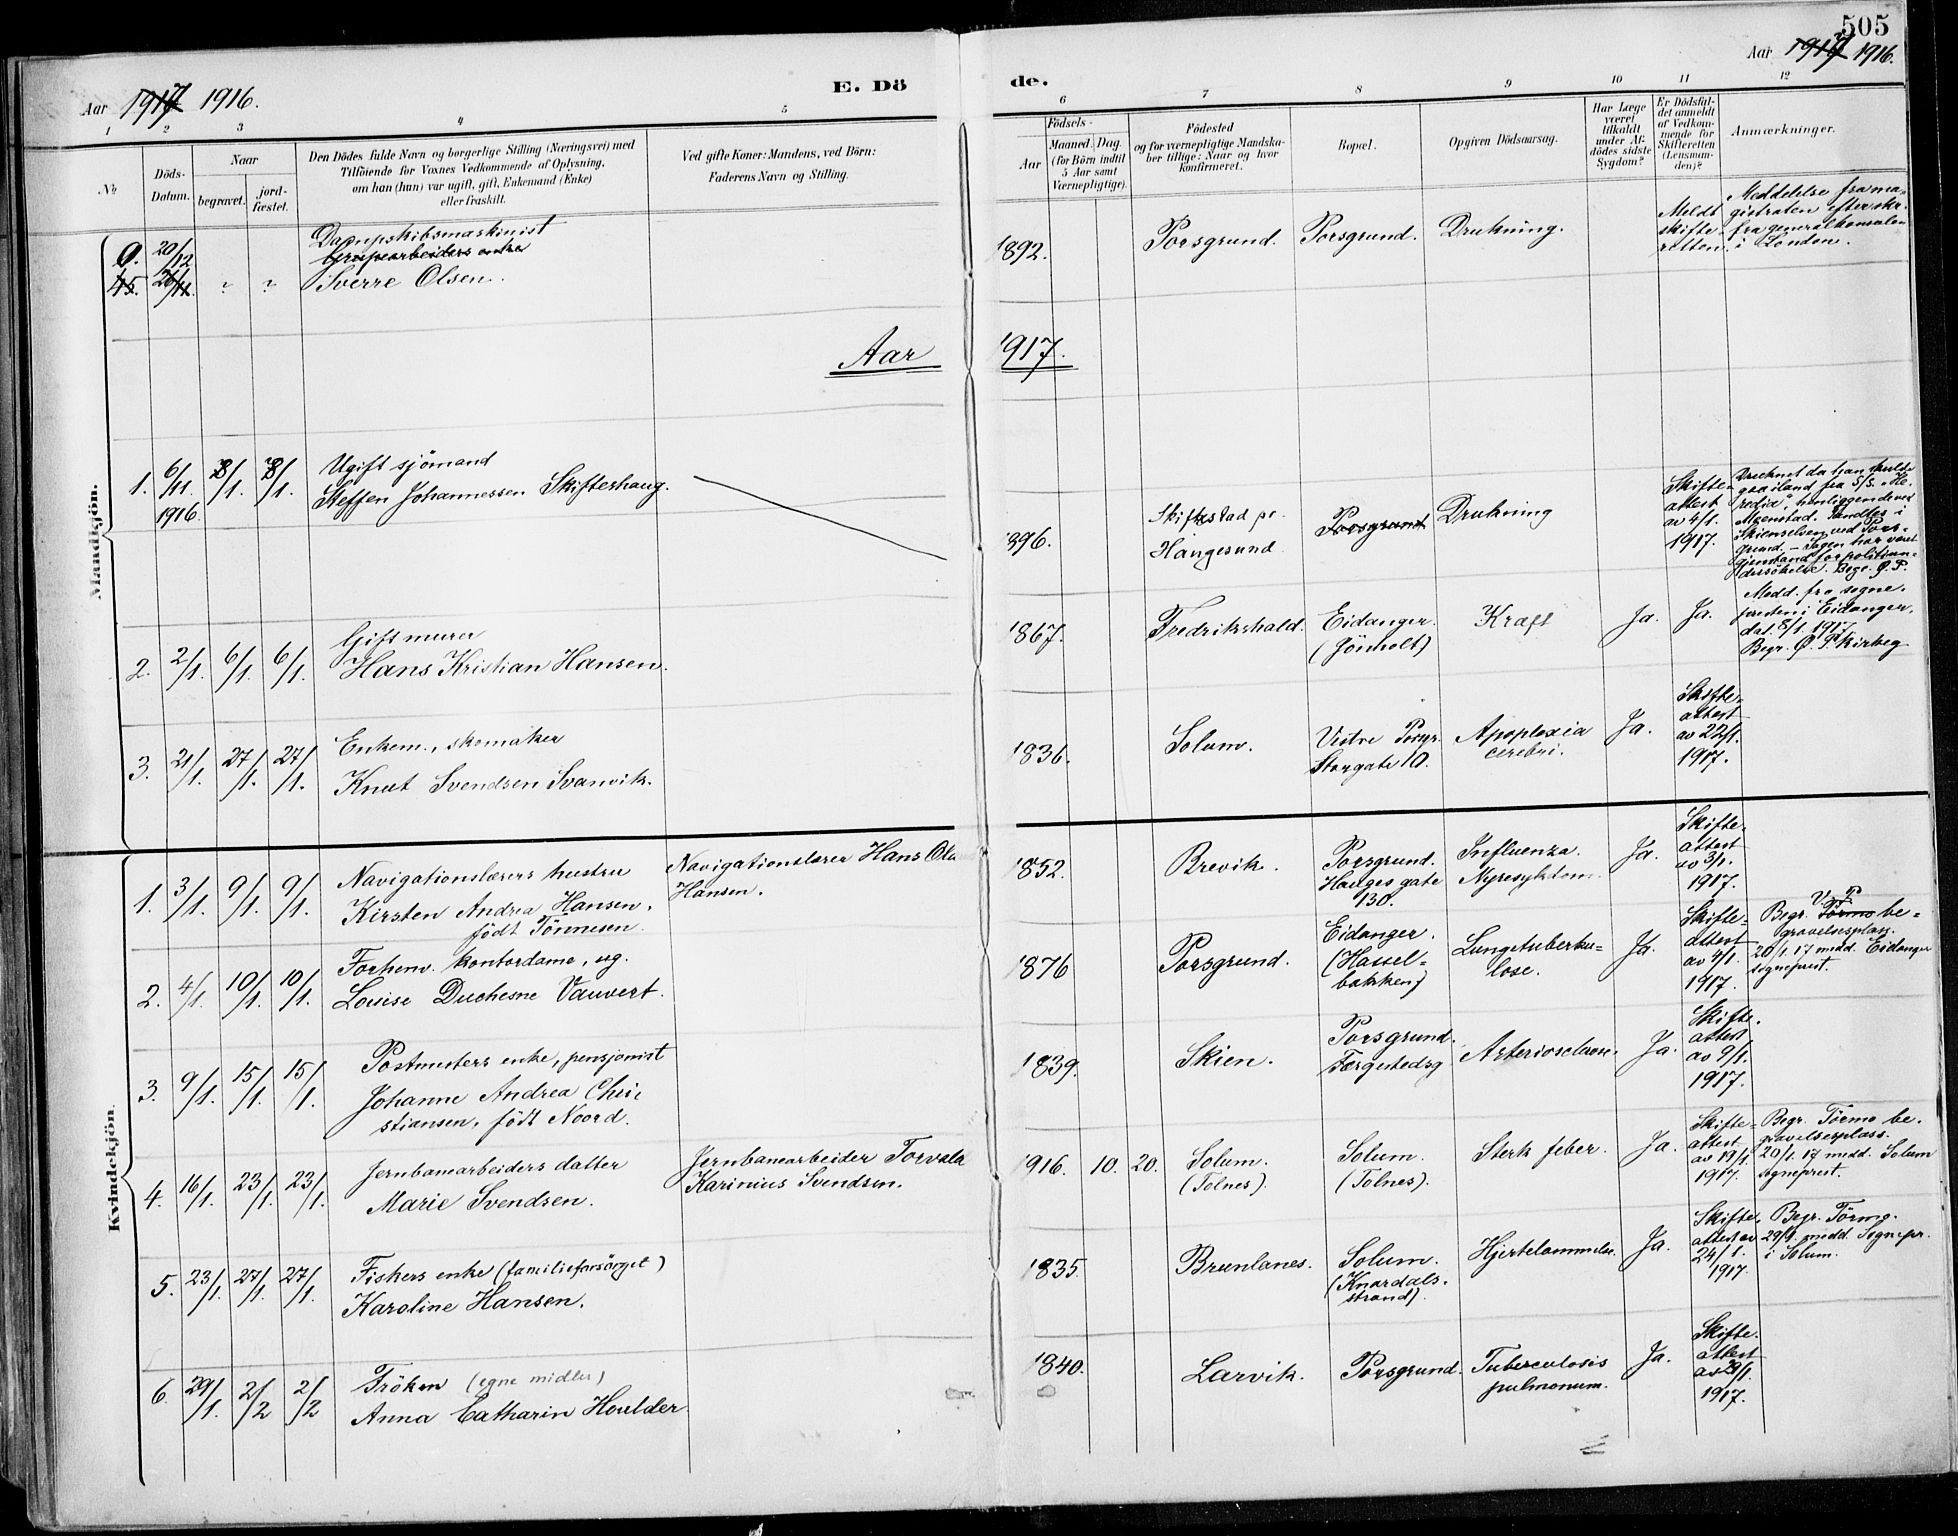 505
Aar 1917 1916.
E. Döde.
Aar 1917 1916.
1 2 3 4 5 6 7 8 9 10 11 12
No
Döds-Datum.
Naar
begravet.
jord-fæstet.
Den Dödes fulde Navn og borgerlige Stilling (Næringsvei) med
Tilföiende for Voxnes Vedkommende af Oplysning,
om han (hun) var ugift, gift, Enkemand (Enke)
eller fraskilt.
Ved gifte Koner: Mandens, ved Börn:
Faderens Navn og Stilling.
Födsels-
Aar
Maaned. Dag.
(for Börn indtil
5 Aar samt
Værnepligtige).
Födested
og for værnepligtige Mandska-
ber tillige: Naar og hvor
konfirmeret.
Bopæl.
Opgiven Dödsaarsag.
Har Læge
været
tilkaldt
under Af-
dödes sidste
Sygdom?
Er Dödsfal-
det anmeldt
af Vedkom-
mende for
Skifteretten
(Lensman-
den)?
Anmærkninger.
Mandkjön.
0. 20/12
Dampskibsmaskinist
Grupearbeiders enke
45. 20/11. " "
Sverre Olsen.
1892. Porsgrund. Porsgrund. Drukning.
Meldt
skifte-
retten.
Meddelelse fra ma-
gistraten efter skr.
fra generalkonsulen
i London.
Aar 1917.
1. 6/11. 1916. 8/1. 8/1.
Ugift sjömand
Steffen Johannessen Skifterhaug.
1896.
Skifkestad pr.
Hangesund
Porsgrund
P
Drukning
Skifte-
attest
av 4/1.
1917.
Drecknet da han skulde
gaa iland fra S/S. "He-
redia", henliggende ved
Menstad. Fandtes i
Skienselven ved Pors-
grund. - Sagen har været
gjenstand for politiun-
dersökelse. Begr. Ø. P.
2. 2/1. 6/1. 6/1.
Gift murer
Hans Kristian Hansen.
1867. Fredrikshald. Eidanger.
(Jönholt)
Kræft Ja. Ja.
Medd. fra sogne-
presten i Eidanger,
dat. 8/1. 1917.
Begr. Ø. P. kirkeg
3. 21/1. 27/1. 27/1.
Enkem., skomaker
Knut Svendsen Svanvik.
1836. Solum. Vestre Porsgr.
Storgate 10.
Apoplexia
cerebri.
Ja.
Skifte-
attest
av 22/1.
1917.
Kvindekjön.
1. 3/1. 9/1. 9/1.
Navigationslærers hustru
Kirsten Andrea Hansen,
födt Tönnesen.
Navigationslærer Hans Ola
Hansen.
1852. Brevik. Porsgrund.
Hauges gate
130.
Influenza.
Nyresykdom.
Ja.
Skifte-
attest
av 3/1.
1917.
2. 4/1. 10/1. 10/1.
Forhenv. kontordame, ug.
Louise Duchesne Vauvert.
1876 Porsgrund. Eidanger.
(Hassel-
bakken)
Lungetuberku-
lose.
Ja.
Skifte-
attest
av 4/1.
1917.
V. P.
Begr. Törmo be-
gravelsesplass.
20/1. 17 medd. Eidanger
sogneprest.
3. 9/1. 15/1. 15/1.
Postmesters enke, pensjonist
Johanne Andrea Chri-
stiansen, födt Noord.
1839. Skien. Porsgrund.
Færgestedsg
Arteriosclerose. Ja.
Skifte.
attest
av 9/1.
1917.
4. 16/1. 23/1. 23/1.
Jernbanearbeiders datter
Marie Svendsen.
Jernbanearbeider Torvald
Karinius Svendsen.
1916. 10. 20. Solum.
(Tolnes).
Solum.
(Tolnes).
Sterk feber. Ja.
Skifte-
attest
av 19/1.
1917.
Begr. Törmo be-
gravelsesplass.
20/1. 17 medd. Solum
sogneprest.
5. 23/1. 27/1. 27/1.
Fiskers enke (familieforsörget)
Karoline Hansen.
1835. Brunlanes. Solum.
(Knardals-
strand).
Hjertelammelse. Ja.
Skifte,
attest av
24/1.
1917.
Begr. Törmo.
29/1. medd. Sognepr.
i Solum.
6. 29/1. 2/2 2/2
Fröken (egne midler)
Anna Catharin Houlder
1840. Larvik. Porsgrund. Tuberculosis
pulmonum.
Ja.
Skifte.
attest
av 29/1.
1917.